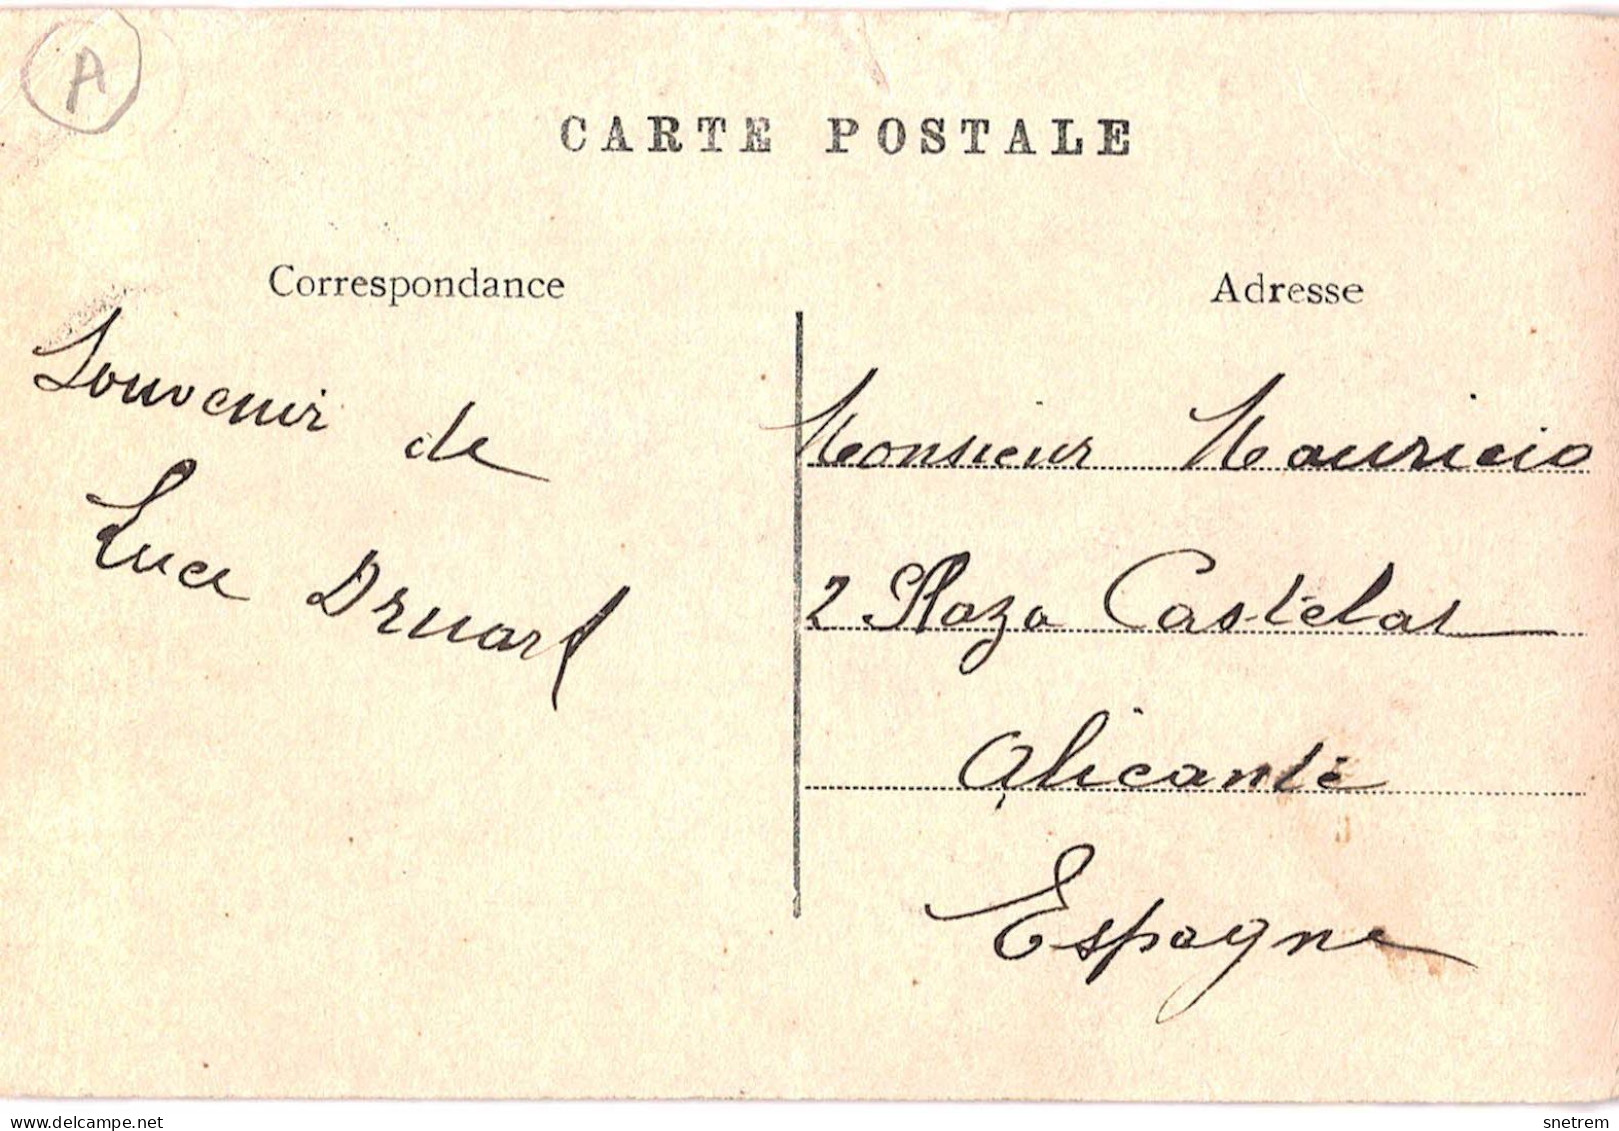 A
CARTE POSTALE
Correspondance
Souvenir de
Luce Druart
Adresse
Monsieur Mauricio
2 Plaza Castelar
Alicante
Espagne
delcampe.net
snetrem